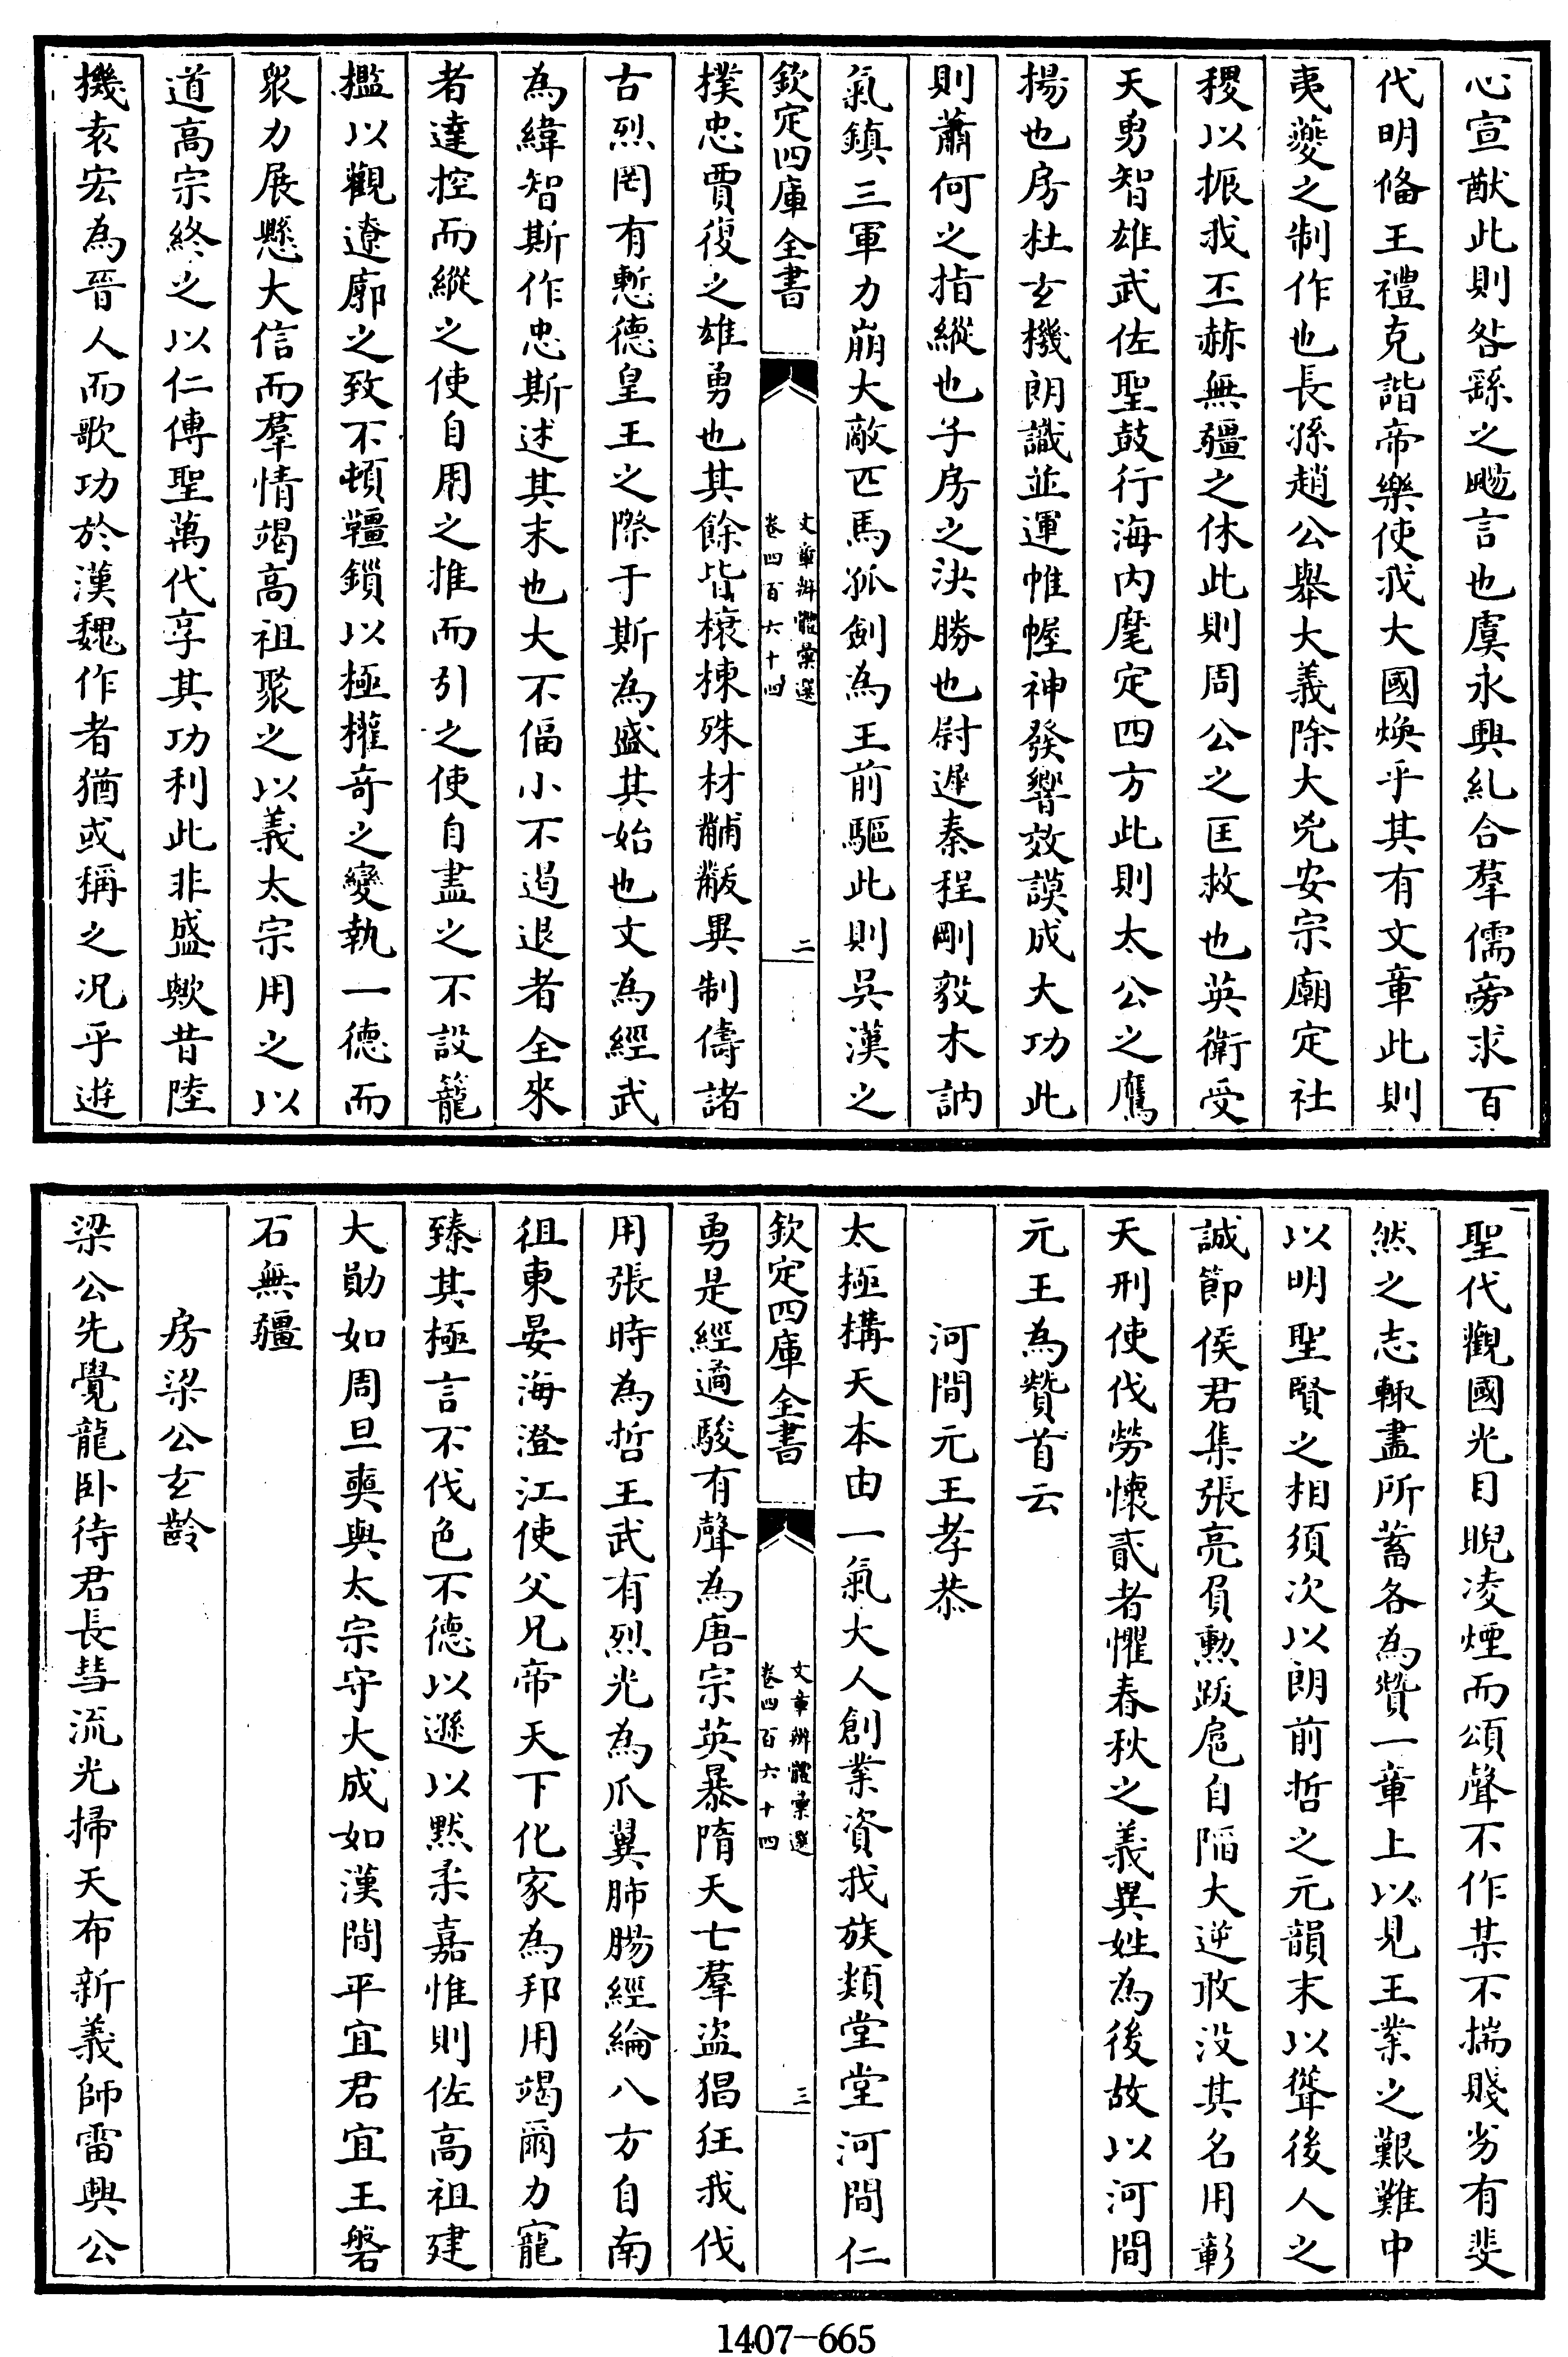 心宣猷此則咎繇之颺言也虞永興糺合羣儒旁求百
代明脩王禮克諧帝樂使我大國煥乎其有文章此則
夷夔之制作也長孫趙公舉大義除大兇安宗廟定社
稷以振我丕赫無疆之休此則周公之匡救也英衛受
天勇智雄武佐聖鼓行海内麾定四方此則太公之鷹
揚也房杜玄機朗識並運帷幄神發響效謨成大功此
則蕭何之指縱也子房之決勝也尉遲秦程剛毅木訥
氣鎮三軍力崩大敵匹馬孤劍為王前驅此則吳漢之
欽定四庫全書
文章辨體彙選
卷四百六十四
二
樸忠賈復之雄勇也其餘皆榱棟殊材黼黻異制儔諸
古烈罔有慙德皇王之際于斯為盛其始也文為經武
為緯智斯作忠斯述其末也大不偪小不遏退者全來
者達控而縱之使自用之推而引之使自盡之不設籠
檻以觀遼廓之致不頓韁鎖以極權奇之變執一德而
衆力展懸大信而羣情竭高祖聚之以義太宗用之以
道高宗終之以仁傳聖萬代享其功利此非盛歟昔陸
機袁宏為晉人而歌功於漢魏作者猶或稱之况乎遊
聖代觀國光目睨凌煙而頌聲不作某不揣賤劣有斐
然之志輙盡所蓄各為贊一章上以見王業之艱難中
以明聖賢之相須次以朗前哲之元韻末以聳後人之
誠節侯君集張亮負勲跋扈自陷大逆敢没其名用彰
天刑使伐勞懷貳者懼春秋之義異姓為後故以河間
元王為贊首云
河間元王孝恭
太極構天本由一氣大人創業資我族類堂堂河間仁
欽定四庫全書
文章辨體彙選
卷四百六十四
三
勇是經遹駿有聲為唐宗英暴隋天亡羣盜猖狂我伐
用張時為哲王武有烈光為爪翼肺腸經綸八方自南
徂東晏海澄江使父兄帝天下化家為邦用竭爾力寵
臻其極言不伐色不德以遜以默柔嘉惟則佐高祖建
大勛如周旦奭與太宗守大成如漢間平宜君宜王磐
石無疆
房梁公玄齡
梁公先覺龍卧待君長彗流光掃天布新義師雷興公
1407-665